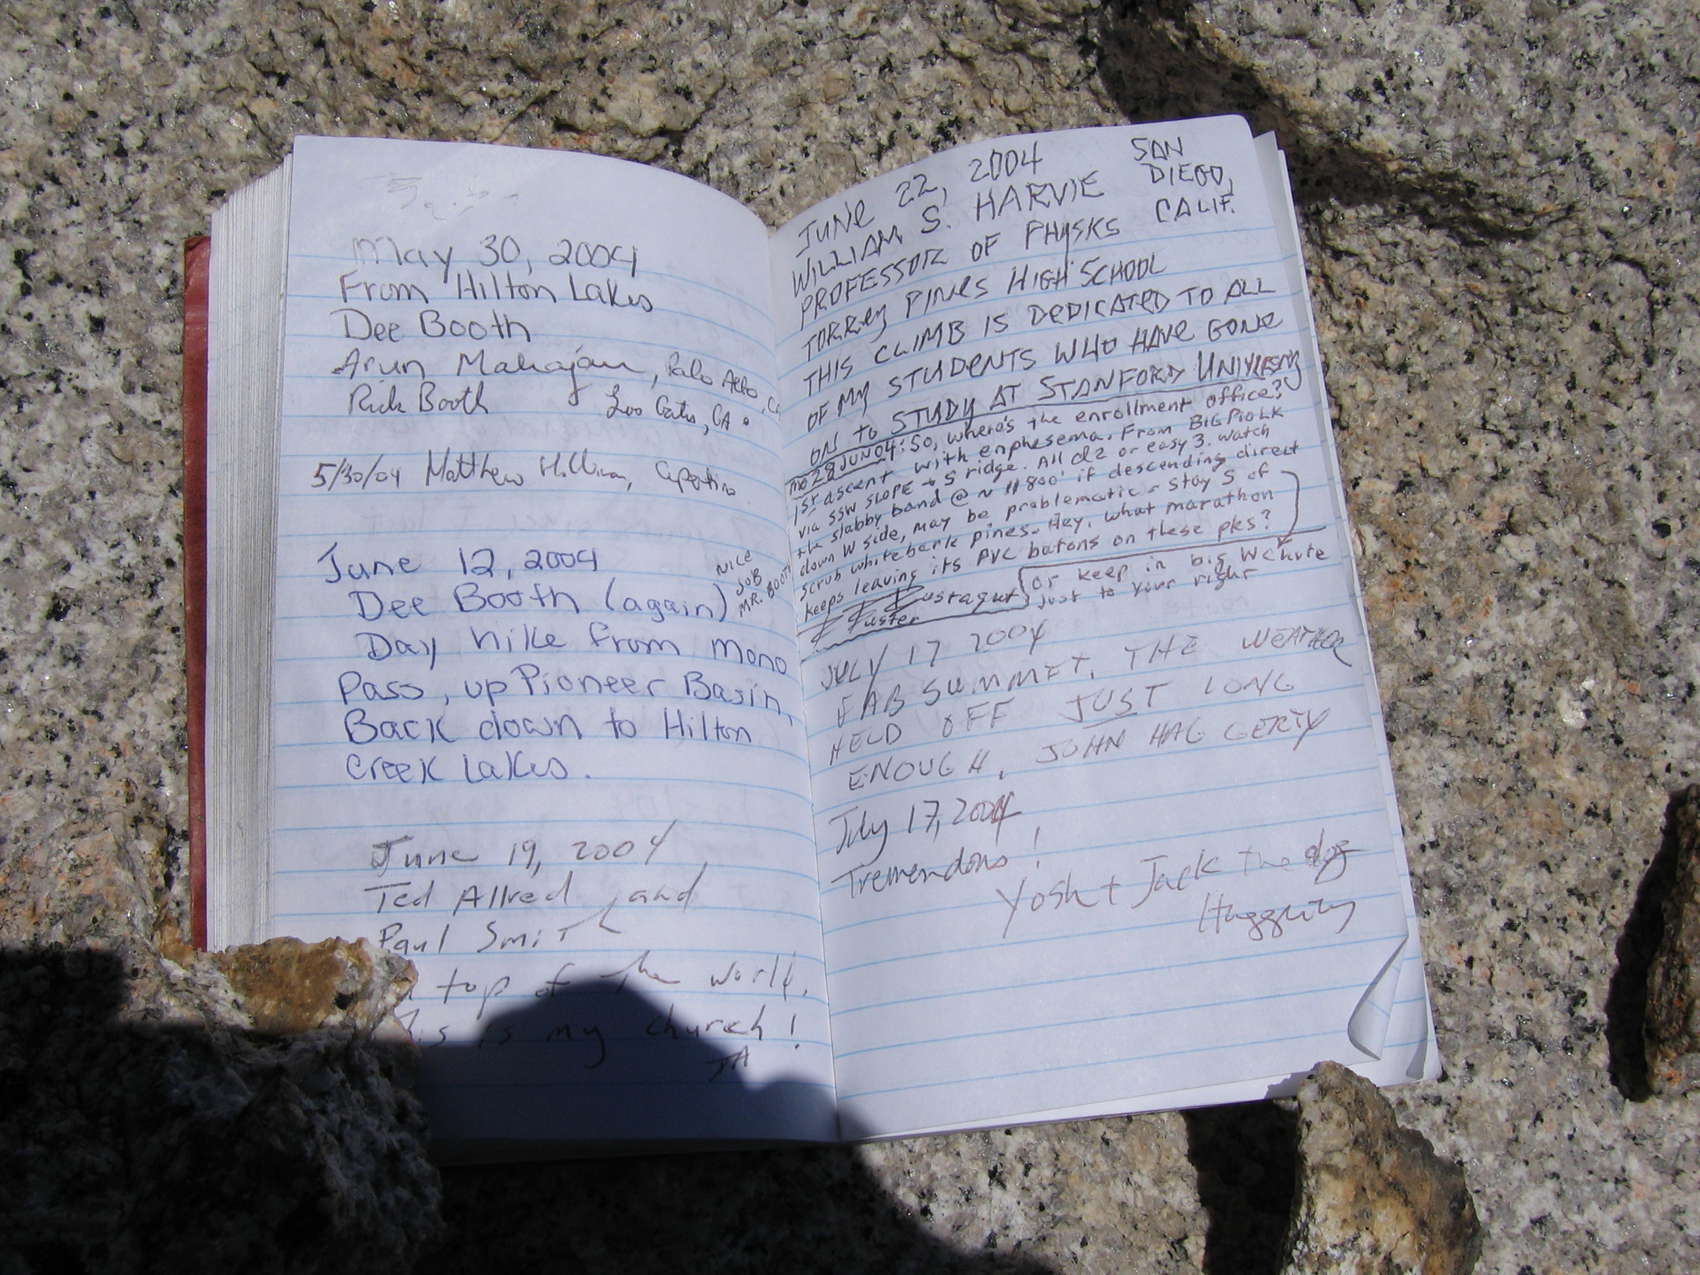 May 30, 2004
From Hilton Lakes
Dee Booth
Arun Mahajan, Palo Alto, CA
Rick Booth Los Gatos, CA.
5/30/04 Matthew Cupertino
June 12, 2004
Dee Booth (again)
NICE
JOB
MR. BOOTH
Day hike from Mono
Pass, up Pioneer Basin,
Back down to Hilton
Creek Lakes.
June 19, 2004
Ted Allred and
Paul Smith
top of the world,
is my church!
JA
JUNE 22, 2004
WILLIAM S. HARVIE
SAN
DIEGO,
CALIF.
PROFESSOR OF PHYSKS
TORREY PINES HIGH SCHOOL
THIS CLIMB IS DEDICATED TO ALL
OF MY STUDENTS WHO HAVE GONE
ON TO STUDY AT STANFORD UNIVERSITY
28JUN04: So, where's the enrollment office?
1st ascent with enphesema. From BIG Pio LK
via SSW SLOPE + S ridge. All cl2 or easy 3. Watch
the slabby band @ ~ 11800' if descending direct
down W side, may be problematic - stay S of
scrub whitebark pines. Hey, what marathon
keeps leaving its PVC batons on these pks?
or keep in big W chute
just to your right
JULY 17 2004
FAB SUMMET, THE WEATHER
HELD OFF JUST LONG
ENOUGH, JOHN HAGGERTY
July 17, 2004
Tremendous!
Yosh + Jack the dog
Haggerty